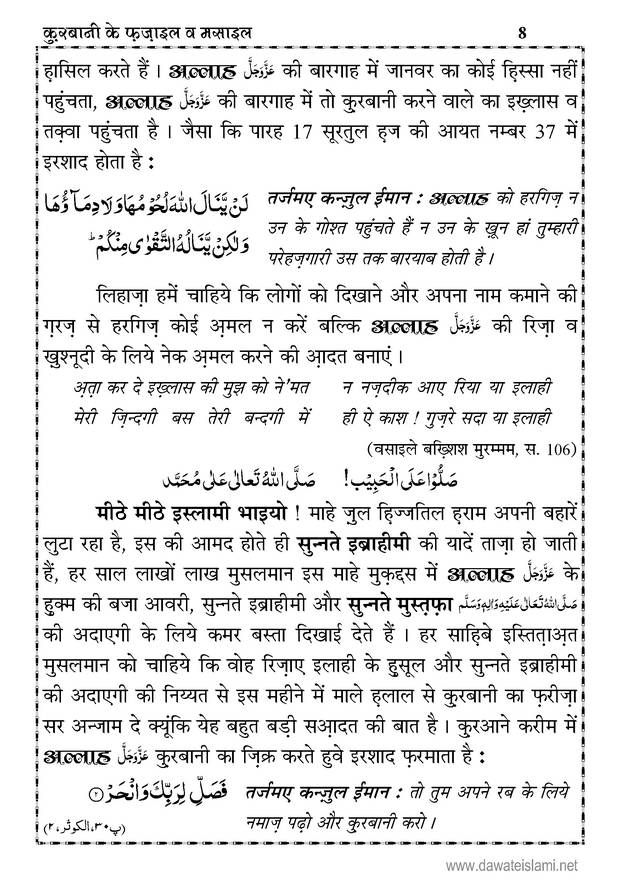 कु़रबानी के फ़ज़ाइल व मसाइल 8
ह़ासिल करते हैं । अल्लाह عَزَّوَجَلَّ की बारगाह में जानवर का कोई हिस्सा नहीं
पहुंचता, अल्लाह عَزَّوَجَلَّ की बारगाह में तो कु़रबानी करने वाले का इख़्लास व
तक़्वा पहुंचता है । जैसा कि पारह 17 सूरतुल ह़ज की आयत नम्बर 37 में
इरशाद होता है :
لَنْ يَّنَالَ اللهَ لُحُوْمُهَا وَلَا دِمَآؤُهَا
وَلٰكِنْ يَّنَالُهُ التَّقْوٰى مِنْكُمْ ؕ
तर्जमए कन्ज़ुल ईमान : अल्लाह को हरगिज़ न
उन के गोश्त पहुंचते हैं न उन के ख़ून हां तुम्हारी
परेहज़गारी उस तक बारयाब होती है ।
लिहाज़ा हमें चाहिये कि लोगों को दिखाने और अपना नाम कमाने की
ग़रज़ से हरगिज़ कोई अ़मल न करें बल्कि अल्लाह عَزَّوَجَلَّ की रिज़ा व
ख़ुश्नूदी के लिये नेक अ़मल करने की आ़दत बनाएं ।
अ़त़ा कर दे इख़्लास की मुझ को ने'मत न नज़दीक आए रिया या इलाही
मेरी ज़िन्दगी बस तेरी बन्दगी में ही ऐ काश ! गुज़रे सदा या इलाही
(वसाइले बख़्शिश मुरम्मम, स. 106)
صَلُّوْا عَلَى الْحَبِيْب! صَلَّى اللهُ تَعَالٰى عَلٰى مُحَمَّد
मीठे मीठे इस्लामी भाइयो ! माहे ज़ुल हिज्जतिल ह़राम अपनी बहारें
लुटा रहा है, इस की आमद होते ही सुन्नते इब्राहीमी की यादें ताज़ा हो जाती
हैं, हर साल लाखों लाख मुसलमान इस माहे मुक़द्दस में अल्लाह عَزَّوَجَلَّ के
हुक्म की बजा आवरी, सुन्नते इब्राहीमी और सुन्नते मुस्त़फ़ा صَلَّى اللهُ تَعَالٰى عَلَيْهِ وَاٰلِهٖ وَسَلَّم
की अदाएगी के लिये कमर बस्ता दिखाई देते हैं । हर साह़िबे इस्तित़ाअ़त
मुसलमान को चाहिये कि वोह रिज़ाए इलाही के ह़ुसूल और सुन्नते इब्राहीमी
की अदाएगी की निय्यत से इस महीने में माले ह़लाल से कु़रबानी का फ़रीज़ा
सर अन्जाम दे क्यूंकि येह बहुत बड़ी सआ़दत की बात है । कु़रआने करीम में
अल्लाह عَزَّوَجَلَّ कु़रबानी का ज़िक्र करते हुवे इरशाद फ़रमाता है :
فَصَلِّ لِرَبِّكَ وَانْحَرْ ۟﴿۲﴾
(پ۳۰،الکوثر،۲)
तर्जमए कन्ज़ुल ईमान : तो तुम अपने रब के लिये
नमाज़ पढ़ो और कु़रबानी करो ।
www.dawateislami.net